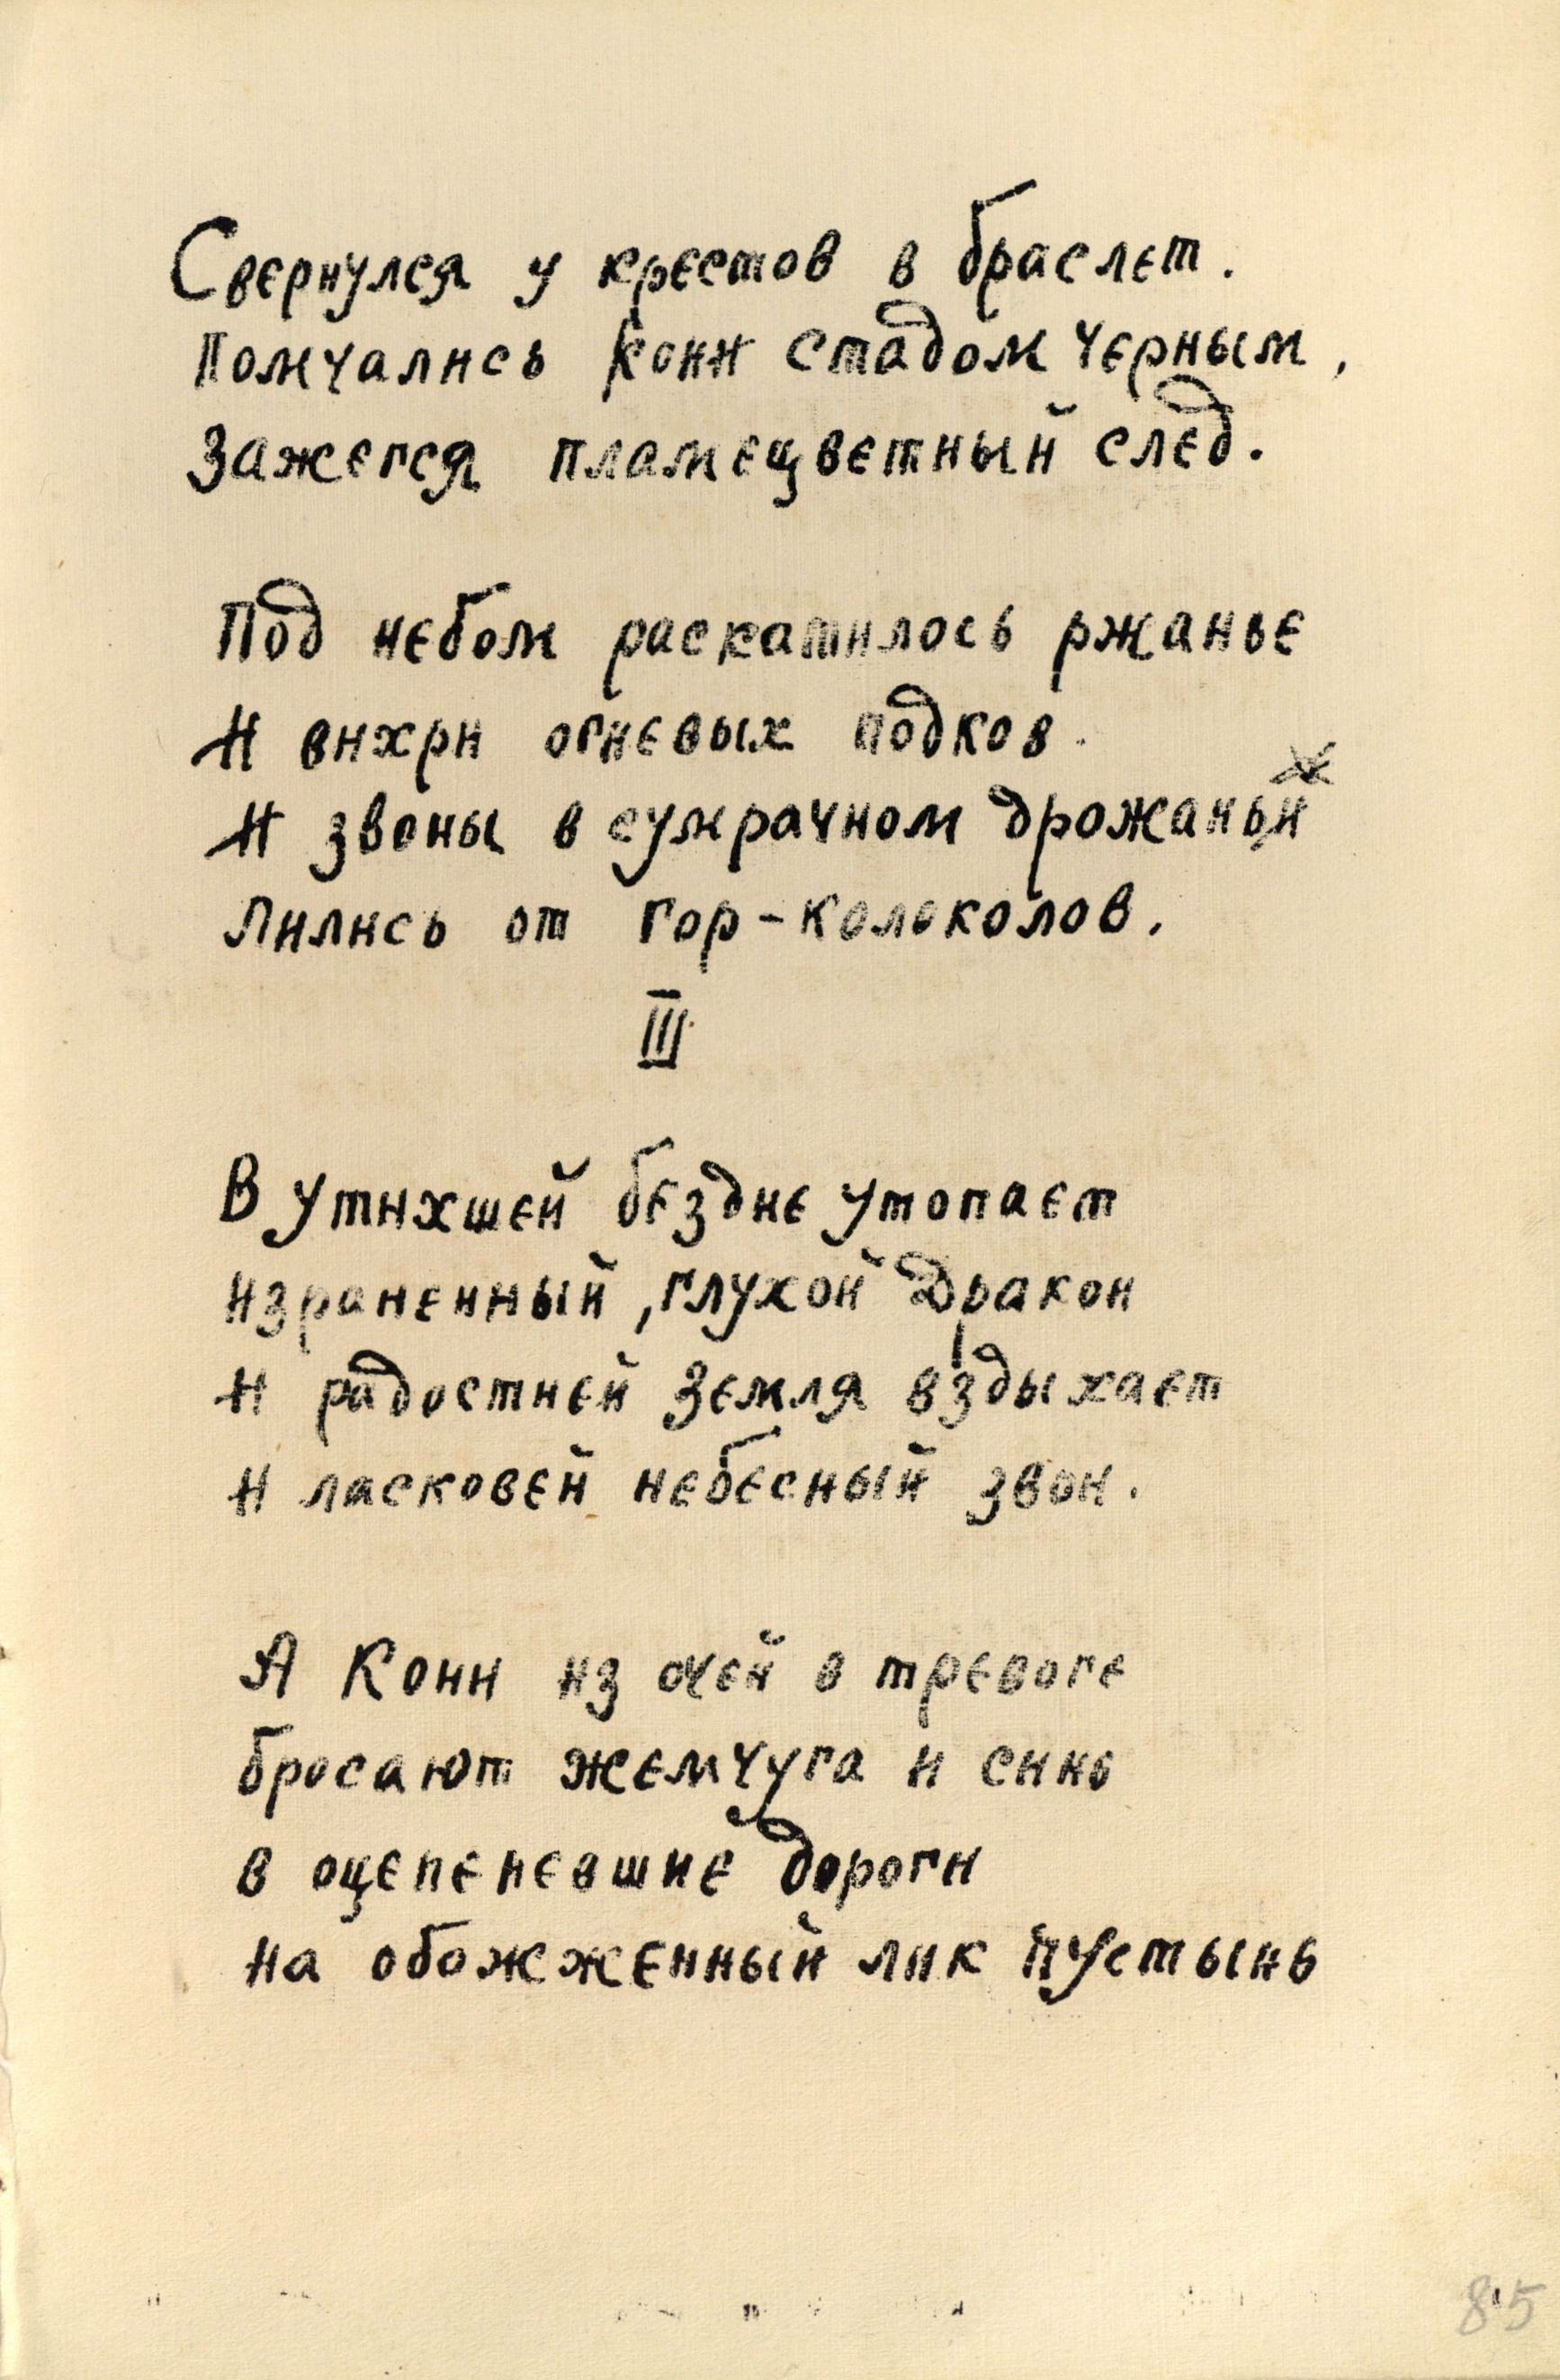 Свернулся у крестов в браслет.
Помчались Кони стадом черным,
Зажегся пламецветный след.
Под небом раскатилось ржанье
И вихри огневых подков.
И звоны в сумрачном дрожаньи
Лились от гор-колоколов.
III
В утихшей бездне утопает
израненный, глухой Дракон
и радостней Земля вздыхает
и ласковей небесный звон.
А Кони из очей в тревоге
бросают жемчуга и синь
в оцепеневшие дороги
на обожженный лик пустынь
85